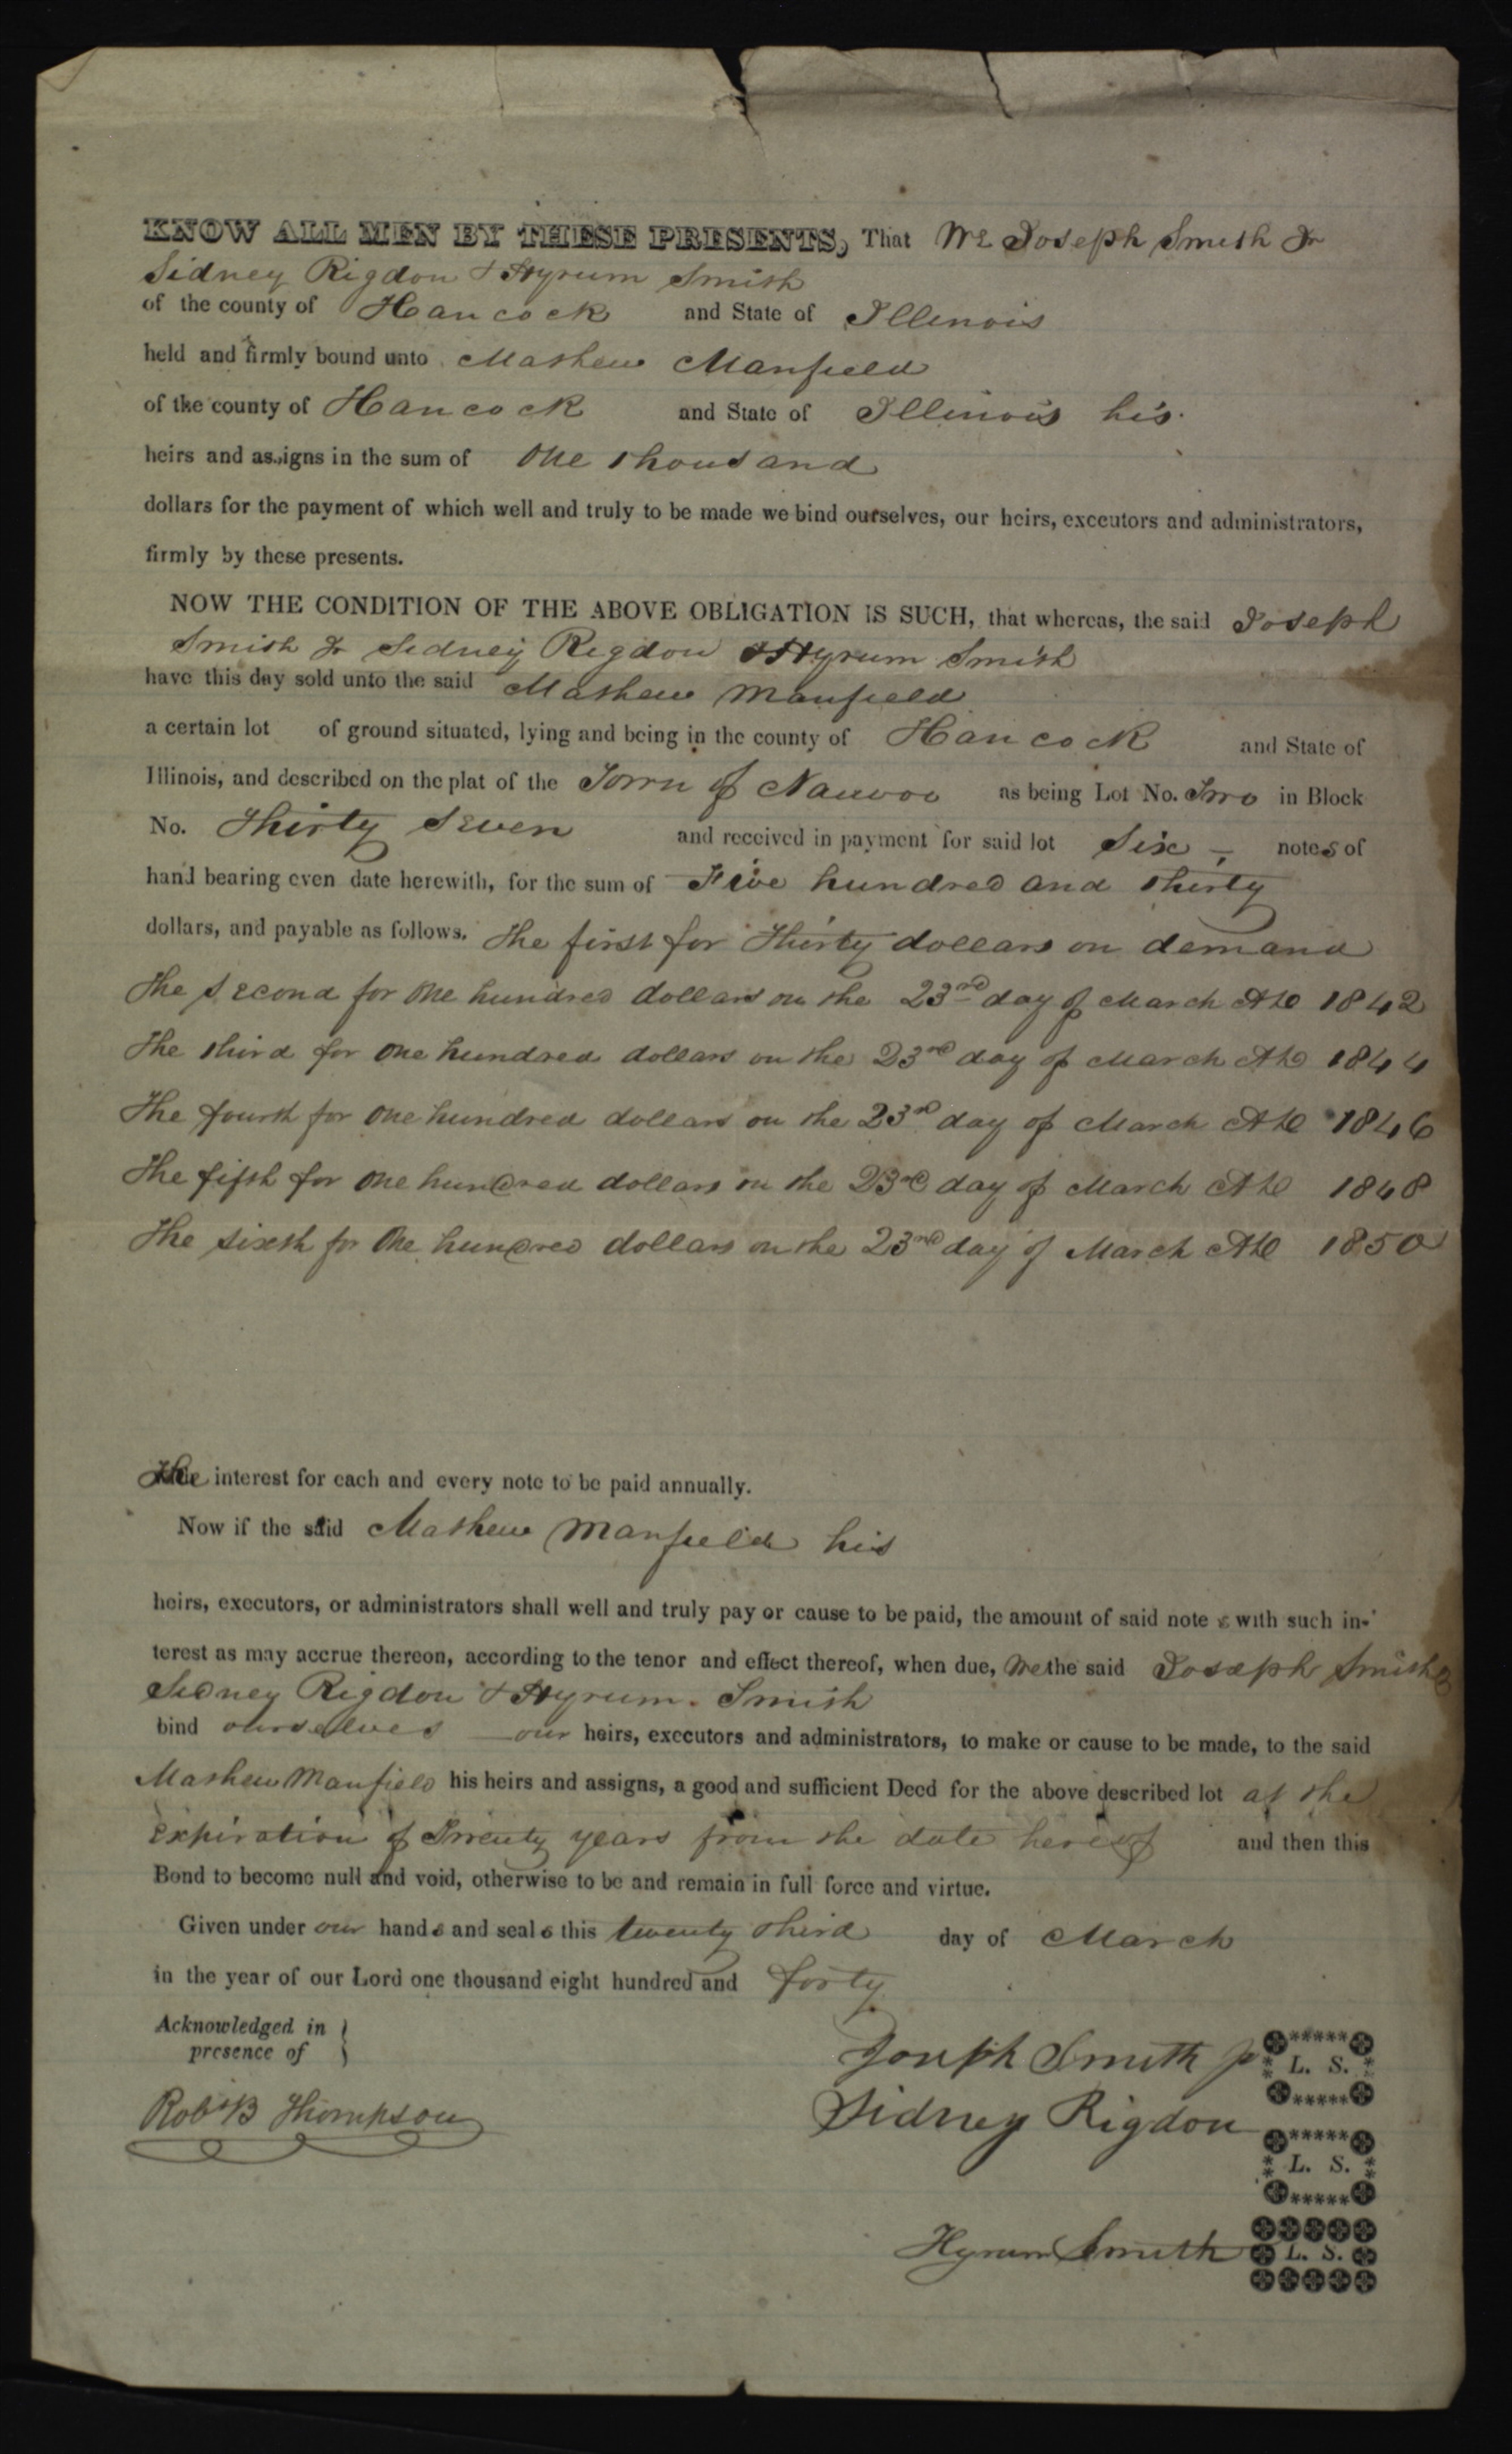 KNOW ALL MEN BY THESE PRESENTS, That We Joseph Smith Jr
Sidney Rigdon & Hyrum Smith
of the county of Hancock and State of Illinois
held and firmly bound unto Mathew Manfield
of the county of Hancock and State of Illinois his
heirs and assigns in the sum of One thousand
dollars for the payment of which well and truly to be made we bind ourselves, our heirs, executors and administrators,
firmly by these presents.
NOW THE CONDITION OF THE ABOVE OBLIGATION IS SUCH, that whereas, the said Joseph
Smith Jr Sidney Rigdon & Hyrum Smith
have this day sold unto the said Mathew Manfield
a certain lot of ground situated, lying and being in the county of Hancock and State of
Illinois, and described on the plat of the Town of Nauvoo as being Lot No. Two in Block
No. Thirty Seven and received in payment for said lot Six - notes of
hand bearing even date herewith, for the sum of Five hundred and thirty
dollars, and payable as follows. The first for Thirty dollars on demand
The second for One hundred dollars on the 23rd day of March AD 1842
The third for One hundred dollars on the 23rd day of March AD 1844
The fourth for One hundred dollars on the 23rd day of March AD 1846
The fifth for One hundred dollars on the 23rd day of March AD 1848
The sixth for One hundred dollars on the 23rd day of March AD 1850
The interest for each and every note to be paid annually.
Now if the said Mathew Manfield his
heirs, executors, or administrators shall well and truly pay or cause to be paid, the amount of said note s with such in-
terest as may accrue thereon, according to the tenor and effect thereof, when due, We the said Joseph Smith Jr
Sidney Rigdon & Hyrum Smith
bind ourselves our heirs, executors and administrators, to make or cause to be made, to the said
Mathew Manfield his heirs and assigns, a good and sufficient Deed for the above described lot at the
expiration of Twenty years from the date hereof and then this
Bond to become null and void, otherwise to be and remain in full force and virtue.
Given under our hands and seals this twenty third day of March
in the year of our Lord one thousand eight hundred and forty
Acknowledged in
presence of
Joseph Smith Jr L. S.
Robt B Thompson
Sidney Rigdon L. S.
Hyrum Smith L. S.